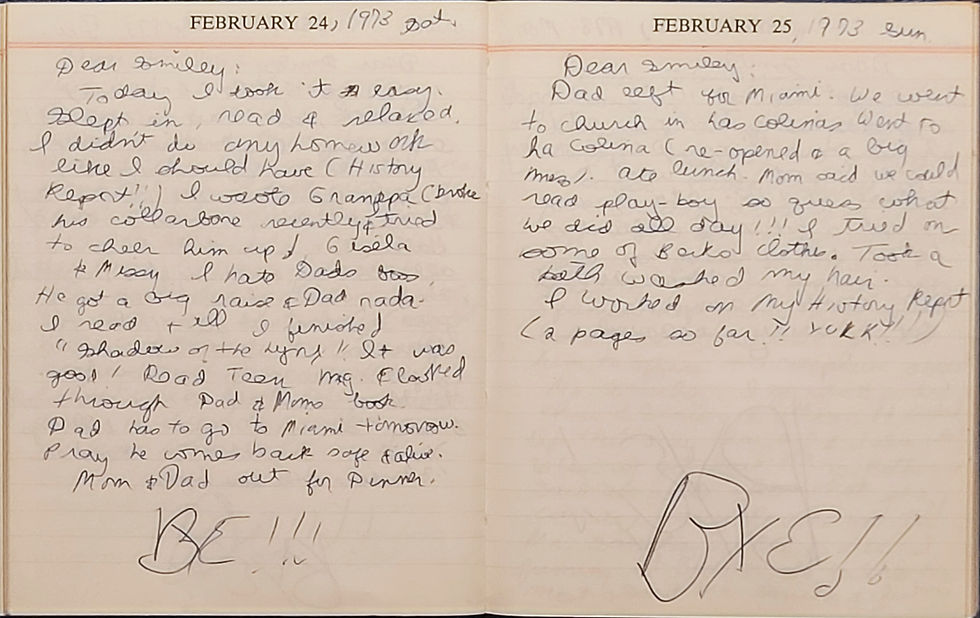 FEBRUARY 24, 1973 Sat.
Dear Smiley:
Today I took it easy.
Slept in, read & relaxed.
I didn't do any homework
like I should have (History
Report!!) I wrote Grandpa (broke
his collarbone recently & tried
to cheer him up) Gisela
& Missy I hate Dads boss.
He got a big raise & Dad nada.
I read till I finished
"Shadow of the Lynx!! It was
good! Read Teen mag. & looked
through Dad & Moms book.
Dad has to go to Miami tomorrow.
Pray he comes back safe & alive.
Mom & Dad out for Dinner.
BE!!!
FEBRUARY 25, 1973 Sun.
Dear Smiley:
Dad left for Miami. We went
to church in Las Colinas Went to
La Colina (re-opened & a big
mess). Ate lunch. Mom said we could
read play-boy so guess what
we did all day!!! I tried on
some of Becks clothes. Took a
bath washed my hair.
I worked on My History Report
(2 pages so far!! YUKK!!)
BYE!!